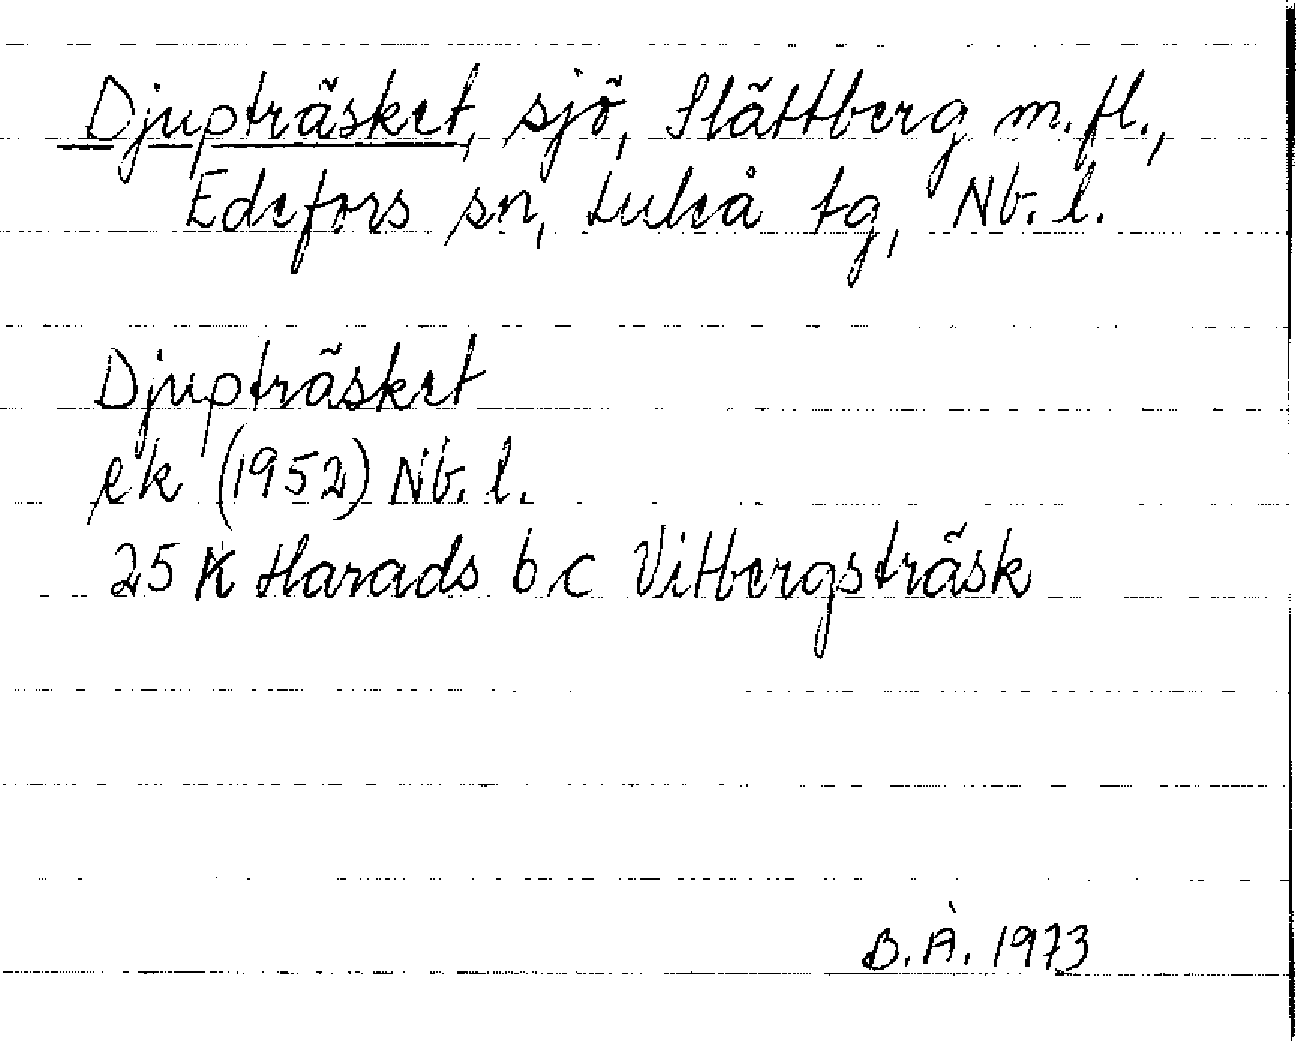 Djupträsket, sjö, Slättberg m.fl.,
Edefors sn, Luleå tg, Nb. l.
Djupträsket
ek (1952) Nb. l.
25 K Harads b c Vitbergsträsk
B.Å. 1973